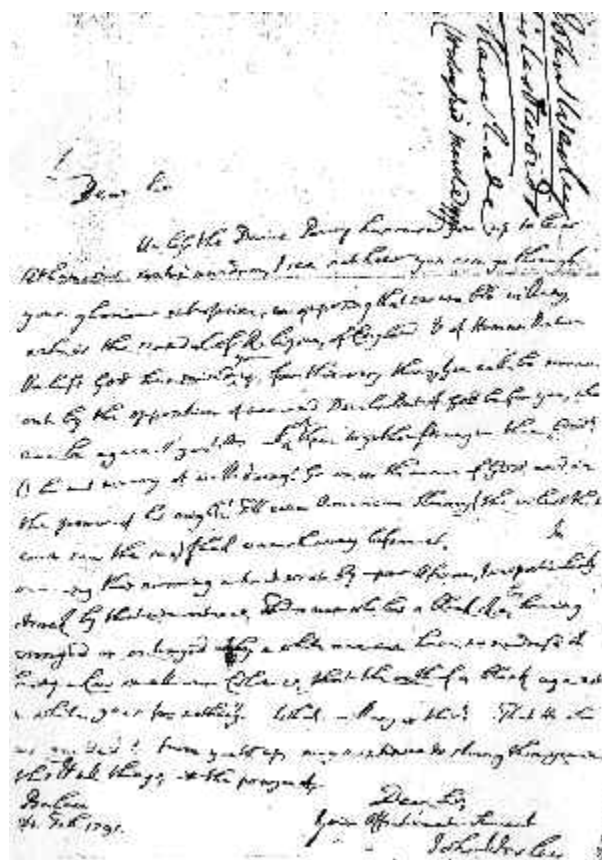 John Wesley
Slave Trade
Dear Sir
Unless the Divine Power has raised you up to be as
Athanasius contra mundum, I see not how you can go through
your glorious enterprise, in opposing that execrable villany
which is the scandal of Religion, of England & of Human Nature
Unless God has raised you up for this very thing, you will be worn
out by the opposition of men and Devils. But if God be for you, who
can be against you? Are all of them together stronger than God?
O be not weary of well doing! Go on, in the name of God, and in
the power of his might, Till even American Slavery (the vilest that
ever saw the sun) shall vanish away before it.
this morning a tract wrote by a poor African, I was particularly
struck by that circumstance, That a man who has a black skin, being
wronged or outraged by a white man, can have no redress; it
being a Law in all our Colonies, that the Oath of a black against
a white goes for nothing. What villany is this? That He who
has guided you from youth up, may continue to strengthen you in
this & all things, is the prayer of,
Dear Sir,
24 Feb. 1791
Your Affectionate Servant
John Wesley